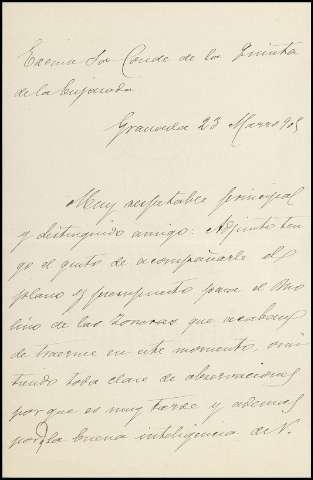 Excmo Sr Conde de las Quinta
de la Enjarada
Granada 23 Marzo 905
Muy respetable principal
y distinguido amigo: Adjunto ten
go el gusto de acompañarle el
plano y presupuesto para el Mo
lino de las Torcas que acaban
de traerme en este momento, omi
tiendo toda clase de observaciones
porque es muy tarde y ademas
por la buena inteligencia de V.